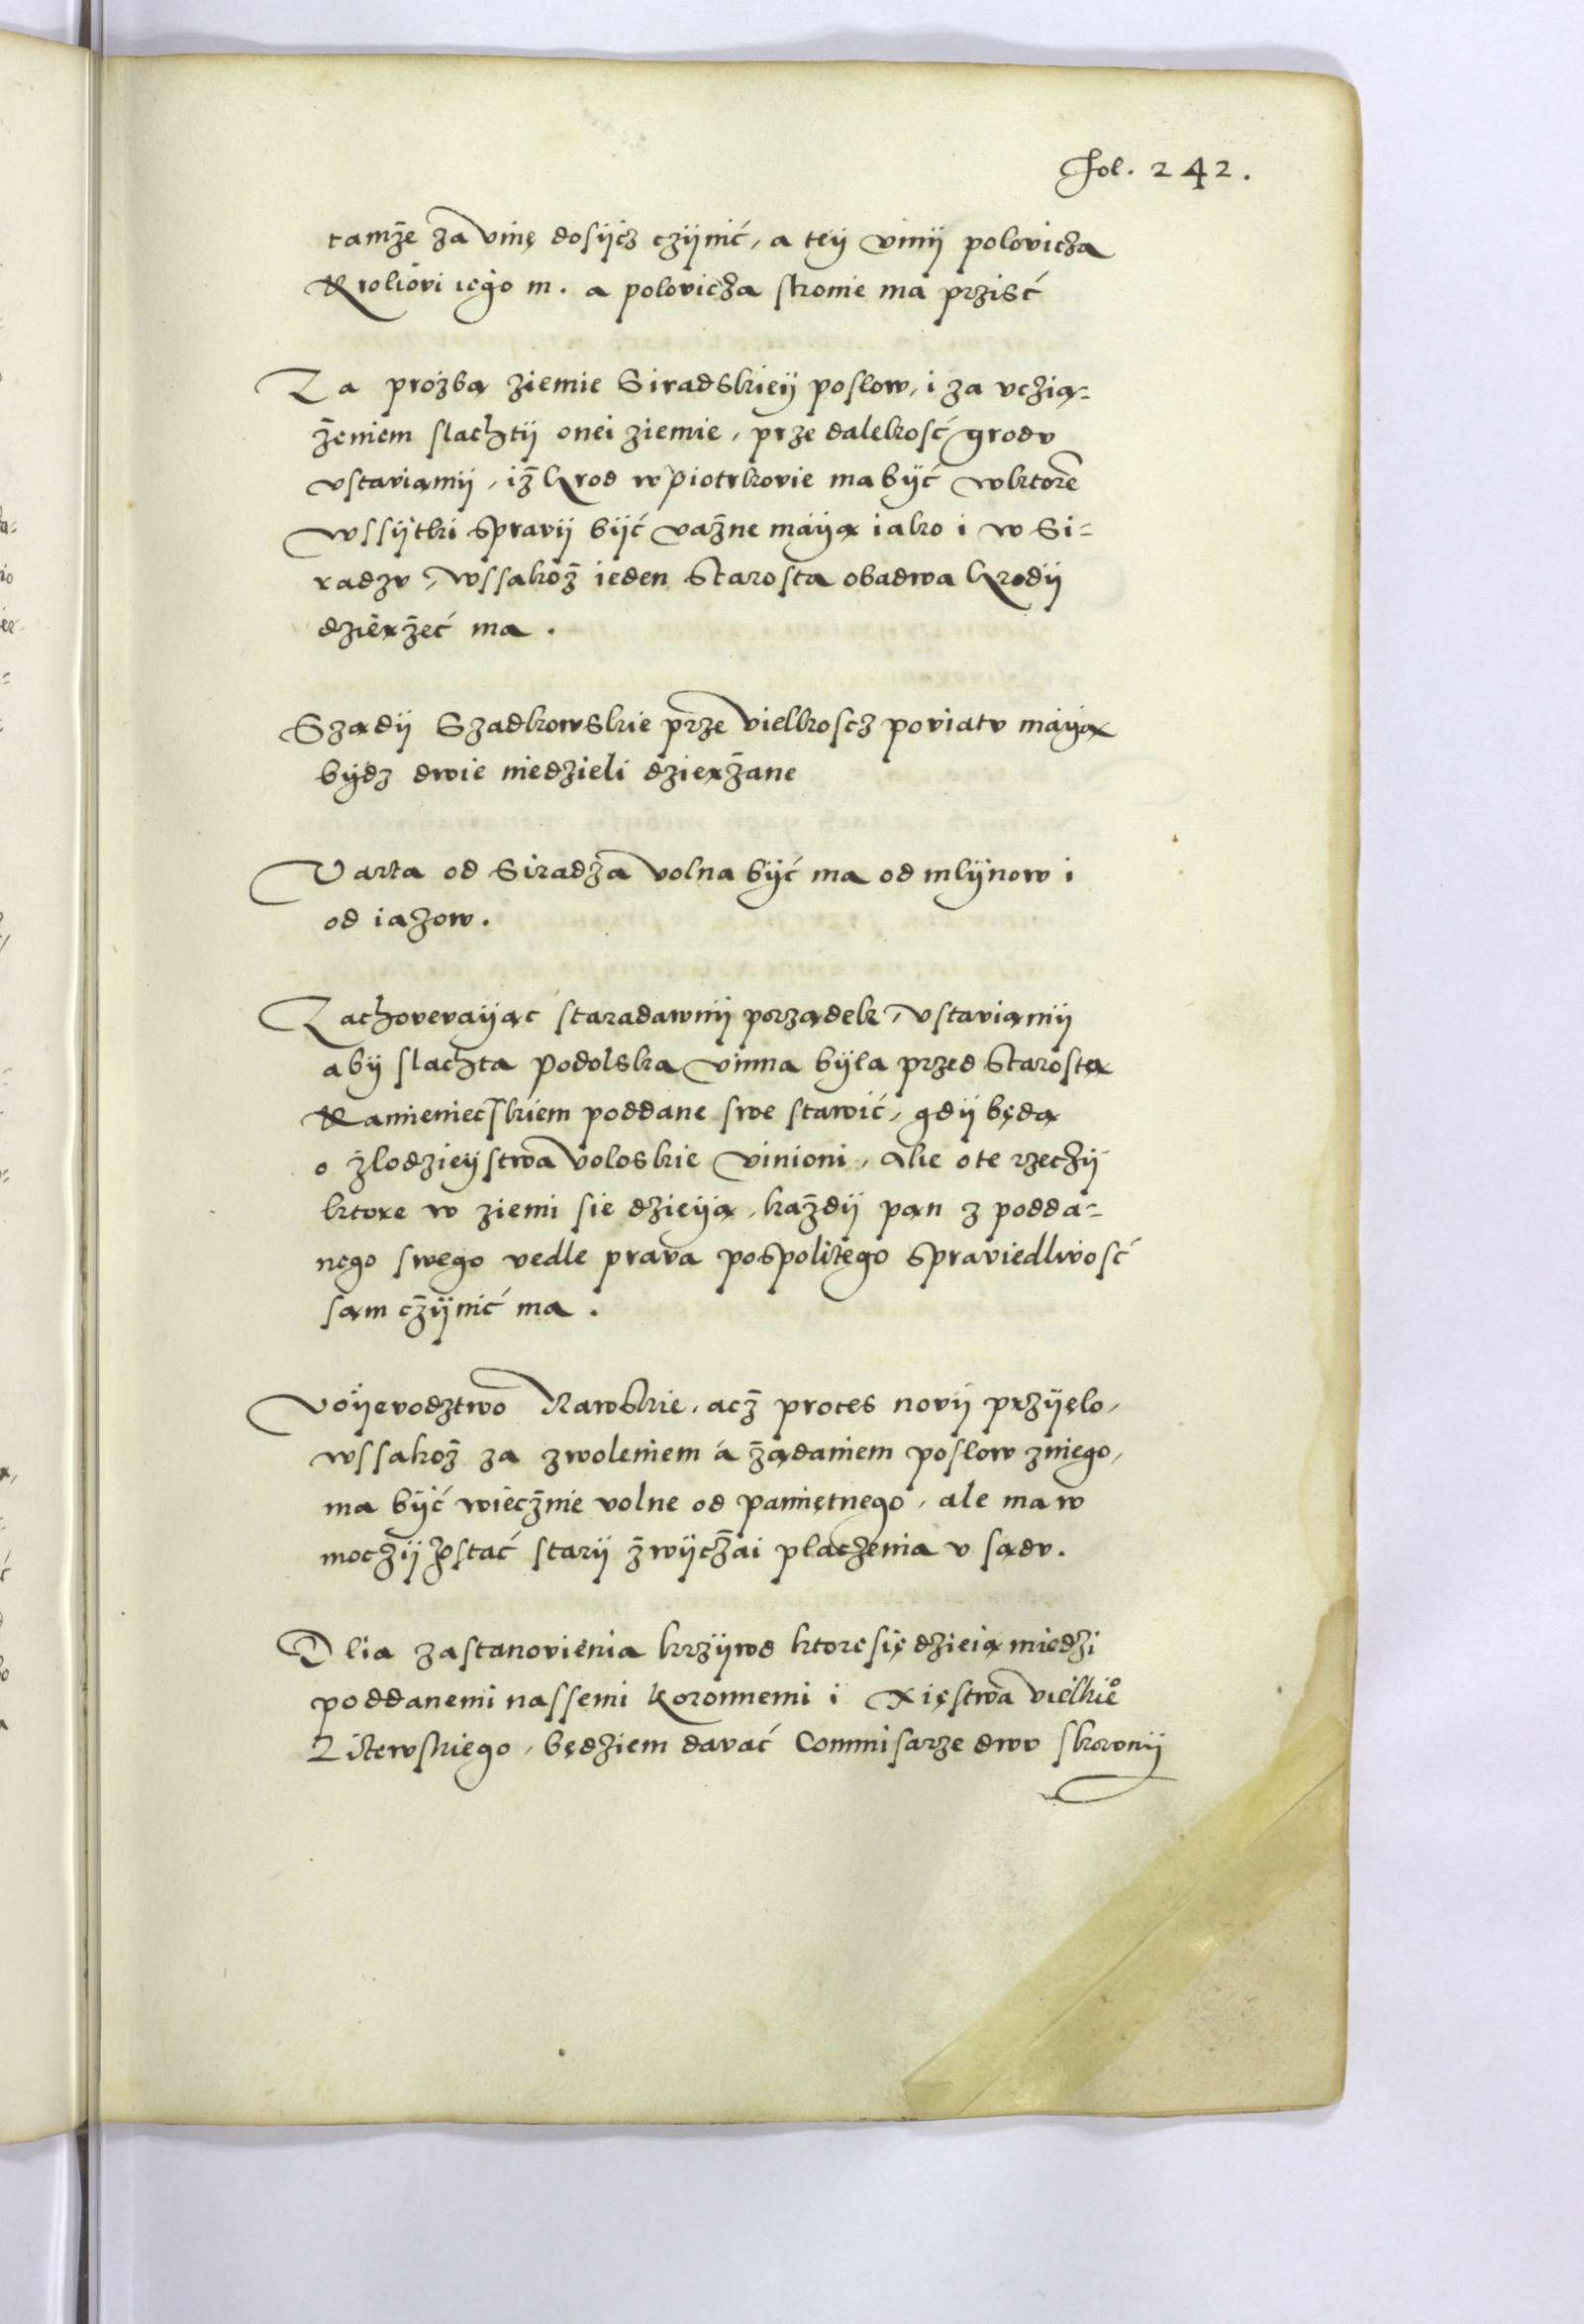 fol. 242.
tamże za vinę dosijcz czijnić, a tej vinij polovicza
Kroliovi iego m. a polovicza stronie ma przisć
Za prożbą ziemie Siradskieij posłow, i za vczią-
żeniem slachtij onei ziemie, prze dalekosć grodv
vstaviamij, iż Grod w Piotrkovie ma bijć w ktore
wssijtki spravij bijć važne maiją iako i w Si-
radzv, wssakoż ieden Starosta obadwa Grodij
dzierżeć ma.
Sządij Szadkowskie prze vielkoscz poviatv maiją
bijdz dwie niedzieli dzierżane
Varta od Siradza volna bijć ma od mlijnow i
od iazow.
Zachovevaijąć staradawnij porządek, vstaviamij
abij slachta Podolska vinna bijła przed Starostą
Kamienieczskiem poddane swe stawić, gdij będą
o złodzieijstwa voloskie vinioni, Ale o te rzeczij
ktore w ziemi sie dzieiją, każdij pan z podda-
nego swego vedle prava pospolitego spraviedliwosć
sąm czijnić ma.
Voijevodztwo Rawskie, acż proces novij przijęlo,
wssakoż za zwoleniem a żądaniem posłow z niego,
ma bijć wiecznie volne od pamiętnego, ale ma w
moczij zostać starij zwijczai placzenia v sądv.
Dlia zastanovienia krzijwd ktore się dzieią miedzi
poddanemi nassemi koronnemi i Xięstwa vielkie°
Litewskiego, będziem davać Commisarze dwv skoronij